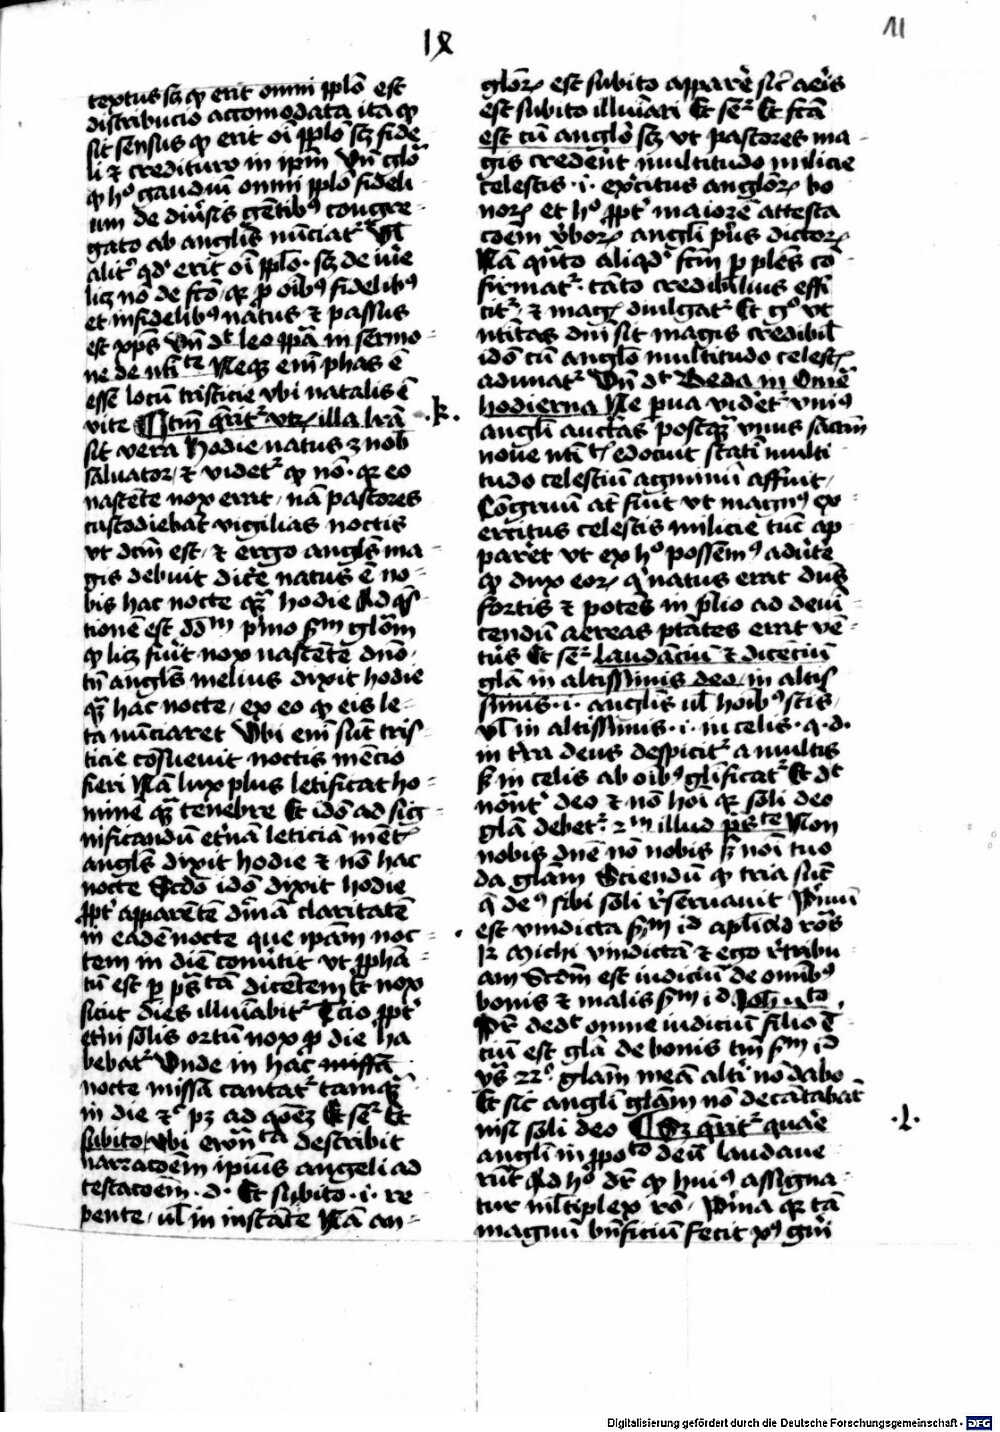 IX
11
textus scz qͥ erit omni pplo est
distribucio accomodata ita qͥ
sit sensus qͥ erit oī pplo scz fide
li & credituro in ipm̄ Vn̄ glō
qͥ hᵒ gaudiū omni pplo fideli
um de diūsis gētibꝰ congre
gato ab angl̄is nūciatʳ Vl̄
alitʳ qd̓ erit oī pplo · scz de iure
licz nō de fcō qꝛ ꝓ oībꝰ fidelibꝰ
et infidelibꝰ natus & passus
est xp̄s Vn̄ dt̓ leo pp̄a in sermo
ne de nt̄iᵗᵉ Neqꝫ em̄ phas ē
esse locū tristicie vbi natalis ē
vite ¶ Itm̄ q̄ritʳ vtꝝ illa lr̄a
·k·
sit vera Hodie natus ē nob̄
saluator / & videtʳ qͥ nō · qꝛ eo
nascēte nox erat / nā pastores
custodiebāt vigilias noctis
vt dcm̄ est / & ergo angl̄s ma
gis debuit dicͤe natus ē no
bis hac nocte qͣꝫ hodie Ad qͦs
tionē est dd̄ᵐ pͥmo ẜᵐ glōm
qͥ licz fuīt nox nascēte dnō /
tn̄ angl̄s melius dixit hodie
qͣꝫ hac nocte / ex eo qͥ eis le
ta nūciaret Vbi em̄ sūt tris
ticie cōsueuit noctis mēcio
fieri Nā lux plus letificat ho
minē qͣꝫ tenebre Et idō ad sig
nificandū et̓nā leticiā mētʳ
angl̄s dixit hodie & nō hac
nocte Scdō idō dixit hodie
ꝓpt̓ apparētē dīnā claritatē
in eadē nocte que ipām noc
tem in diē conūtit vt ꝓphā
tū est ꝑ pͣs̄ᵗᵃ dicētem Et nox
sicut dies illuīabitʳ Tᵉcio ꝓpt̓
et̓ni solis ortū nox ꝓ die ha
bebatʳ Vnde in hac missa
nocte missā cantatʳ tamqͣꝫ
in die &c̓ pꝫ ad qōeꝫ Et seʳ Et
subito / Vbi ewn̄ᵗᵃ describit
narracoēm ipiūs angeli ad
testacoēm · d · Et subito · i · re
pente / ul̄ in instāte Nā an
glōꝝ est subito apparē sic̓ aeīs
est subito illuīari Et seʳ Et fctā
est cū anglō scz vt pastores ma
gis credent multitudo milicie
celestis · i · exͤcitus anglōꝝ bo
noꝝ et hᵒ ꝓpt̓ maiorē attesta
coēm v̓boꝝ angli pͥus dictoꝝ
Nā qͣnto aliqd̓ fcm̄ ꝑ ples̄ cō
firmatʳ · tāto credibilius effi
citʳ / & magꝭ diuulgatʳ Et gͦ vt
nt̄itas dn̄i sit magis credibil̄
idō cū anglō multitudo celestꝭ
adunatʳ Vn̄ dt̓ Beda in Omē
hodierna Ne ꝑua videtʳ vniꝰ
angli auctās postqͣꝫ vnius sācm̄
noue nt̄iᵗⁱ edocuit statī multi
tudo celestiū agminū affuit /
Cōgruū at̄ fuit vt magnꝰ ex
ercitus celestis milicie tūc ap
paret vt ex hᵒ possemꝰ adūte
qͥ dux eoꝝ qͥ natus erat dūs
fortis & potēs in plio ad deuī
cendū aereas pt̄ates erat vē
tūs Et seʳ laudāciū & dicēciū
glā in altissimis deo / in altis
simis · i · angl̄is ul̄ hoībꝰ scīs /
vl̄ in altissimis · i · in celis · q · d ·
in t̓ra deus despicitʳ a multis
ẜ in celis ab oībꝰ glīficatʳ Et dt̓
nōnt̓ deo & nō hoī qꝛ soli deo
glā debetʳ 2ᵐ illud pͣs̄ᵗᵉ Non
nobis dnē nō nobis ẜ noī tuo
da glām Sciendū qͥ tria sūt
q̄ deꝰ sibi soli rͤseruauit Pͥmū
est vindicta ẜᵐ id apl̄i ad rōs
12 Michi vindictā & ego rͤtribu
am Scdm̄ est iudiciū de omībꝰ
bonis & malis ẜᵐ id Joh vᵗᵒ
Pr̄ dedt̓ omne iudiciū filio T̓
ciū est glā de bonis tm̄ ẜᵐ id
ysͣ 22ᶜ glām meā altī nō dabo
Et sic angli glām nō decātabāt
nisi soli deo ¶ Scz q̄ritʳ quare
·l·
angli in ppōᵗᵒ deū laudaue
rūt Ad hᵒ dr̄ qͥ huiꝰ assigna
tur ml̄tiplex rō / Pͥma qꝛ tā
magnū bn̄ficiū fecit xꝰ gnī
Digitalisierung gefördert durch die Deutsche Forschungsgemeinschaft - DFG